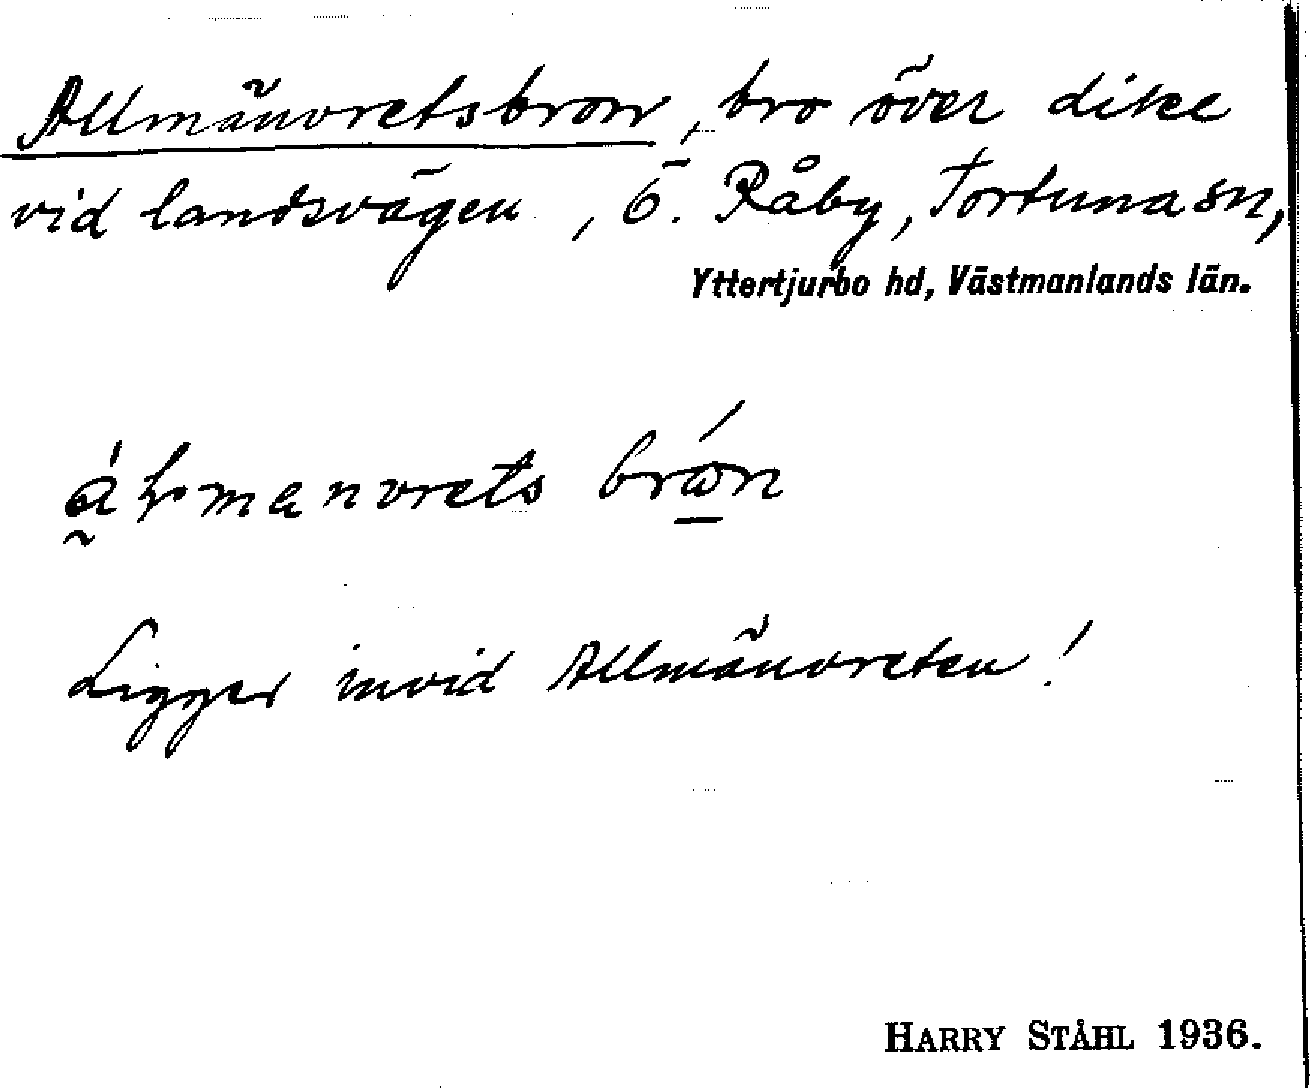 Allmänvretsbron, bro över dike
vid landsvägen, Ö. Råby, Tortuna sn,
Yttertjurbo hd, Västmanlands län.
vrets
Ligger invid Allmänvreten!
HARRY STÅHL 1936.